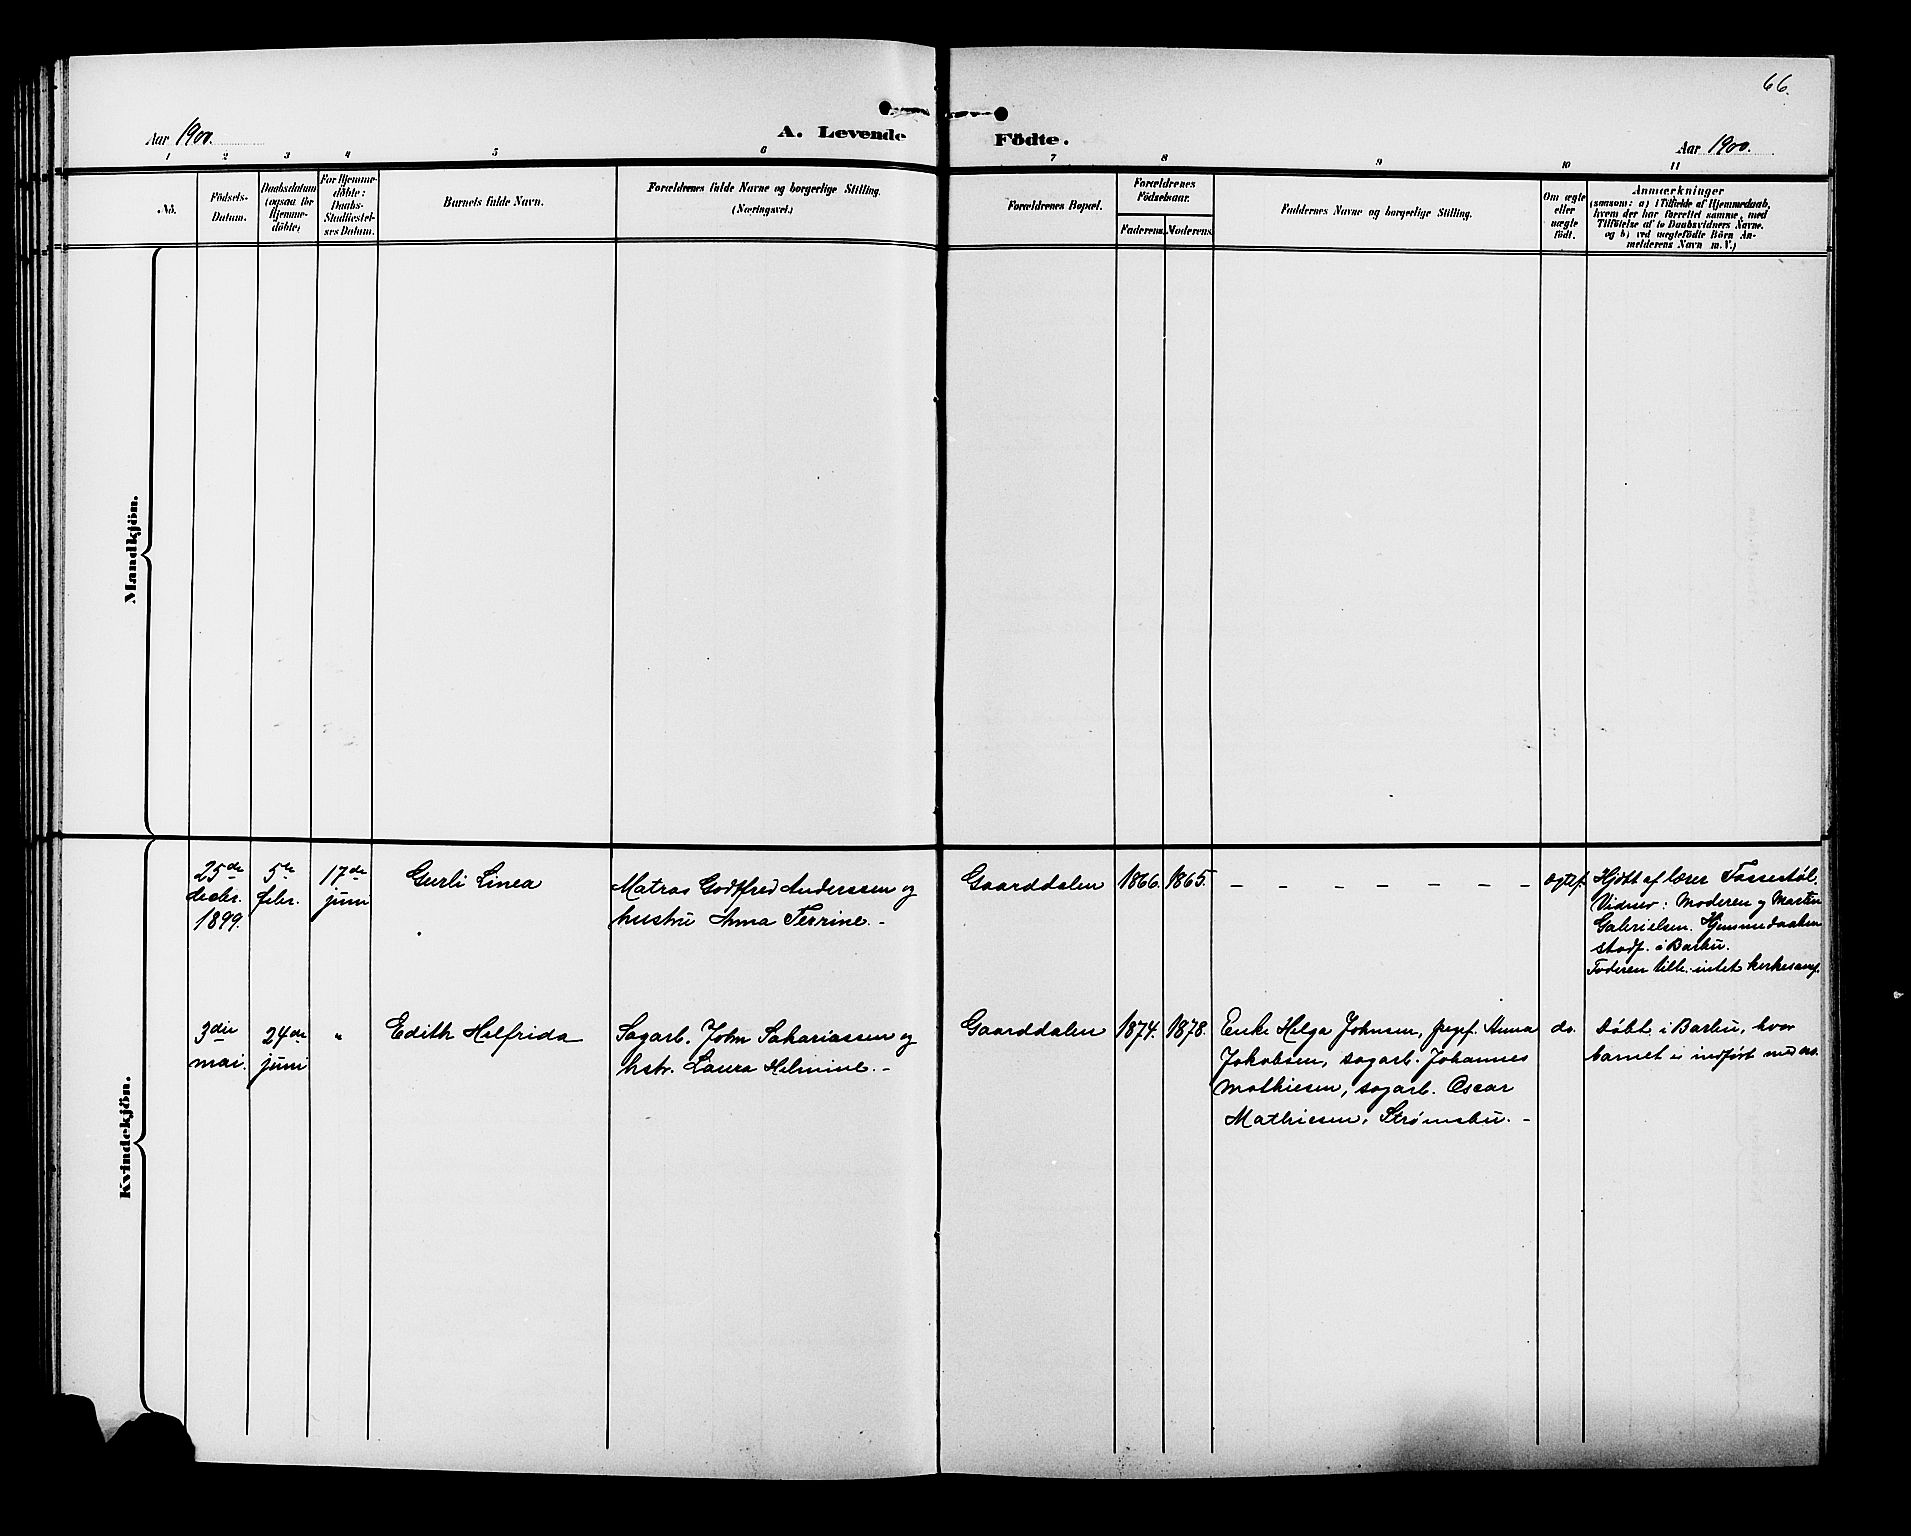 66.
Aar 1900.
A. Levende Födte.
Aar 1900.
1 2 3 4 5 6 7 8 9 10 11
No.
Födsels-
Datum.
Daabsdatum
(ogsaa for
Hjemme-
döbte)
For Hjemme-
döbte:
Daabs-
Stadfæstel-
ses Datum.
Barnets fulde Navn.
Forældrenes fulde Navne og borgerlige Stilling.
(Næringsvei.)
Forældrenes Bopæl.
Forældrenes
Födselsaar.
Faderens. Moderens.
Faddernes Navne og borgerlige Stilling.
Om ægte
eller
uægte
födt.
Anmærkninger
(saasom: a) i Tilfælde af Hjemmedaab,
hvem der har forrettet samme, med
Tilföielse af to Daabsvidners Navne.
og b) ved uægtefödte Börn An-
melderens Navn m. V.)
Mandkjön.
Kvindekjön.
25de
decbr.
1899.
5te
febr.
17de
juni
Gurli Linea
Matros Godtfred Anderssen og
hustru Anna Terrine. -
Gaarddalen
1866.
1865.
- - - - - - - -
ægtef.
Hjdøbt af lærer Fossestøl.
Vidner: Moderen og Martin
Gabrielsen. Hjemmedaaben
stadf. i Barbu.
Faderen tilh. intet kirkesamf.
3die
mai.
24de
juni
"
Edith Helfrida
Sagarb. John Sakariassen og
hstr. Laura Helmine. -
Gaarddalen
1874.
1878.
Enke Helga Johnsen, pige Anna
Jakobsen, sagarb. Johannes
Mathiesen, sagarb. Oscar
Mathiesen, Strømsbu. -
do.
Døbt i Barbu, hvor
barnet er indført med no.